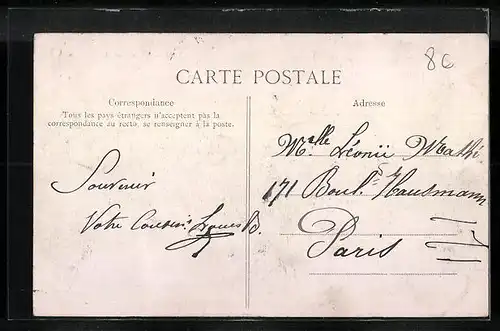 8c
CARTE POSTALE
Correspondance
Tous les pays étrangers n'acceptent pas la
correspondance au recto, se renseigner à la poste.
Souvenir
Votre Cousin
Adresse
Melle Léonie Mathi
171 Boul. Hausmann
Paris